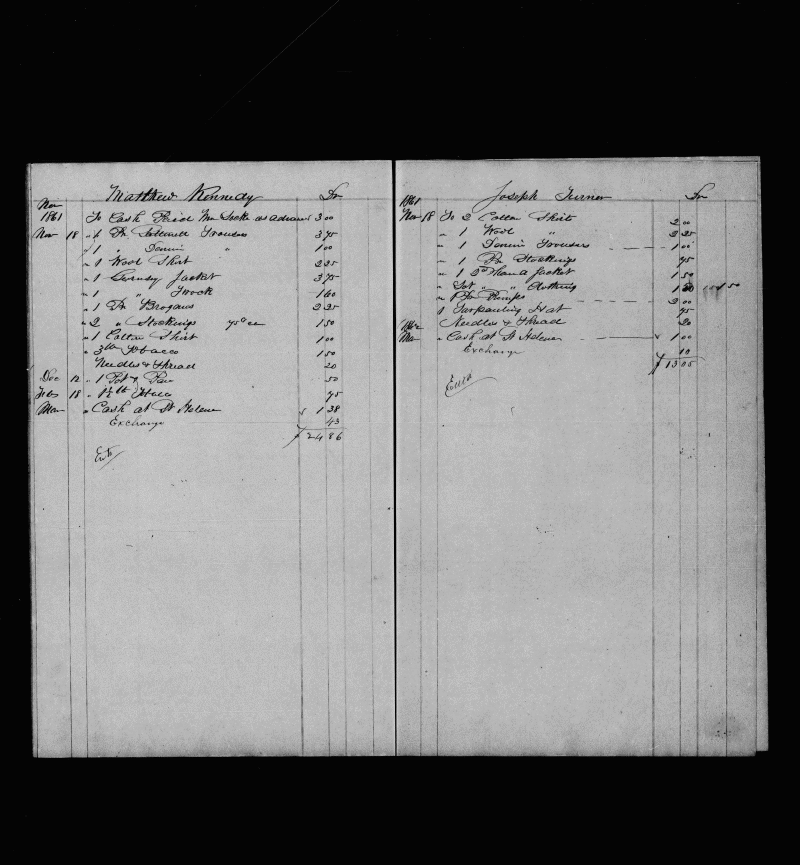 Matthew Kennedy Dr
Nov
1861 To Cash Paid Wm Locke as advance 3 00
Nov 18 " 1 Pr Trousers 3 75
" 1 " Denim " 1 00
" 1 Wool Shirt 2 25
" 1 Gurnsey Jacket 3 75
" 1 " Frock 1 60
" 1 Pr Brogans 2 25
" 2 " Stockings 75c ea 1 50
" 1 Cotton Shirt 1 00
" 3 lb Tobacco 1 50
Needles & Thread 20
Dec 12 " 1 Pot & Pan 50
Feb 18 " 1½ lb 75
Mar " Cash at St Helena 1 38
Exchange 43
$ 24 86
Joseph Turner Dr
1861
Nov 18 To 2 Cotton Shirts 2 00
" 1 Wool " 2 25
" 1 Denim Trousers 1 00
" 1 Pr Stockings 75
" 1 Jacket 1 50
" Lot " " Clothing 1 50
" 1 Pr Pumps 2 00
1 Tarpauling Hat 75
Needles & Thread 20
1862
Mar " Cash at St Helena 1 00
Exchange 10
$ 13 05